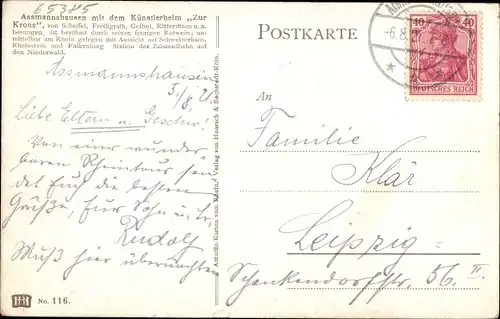 65385
Assmannshausen mit dem Künstlerheim „Zur
Krone“, von Scheffel, Freiligrath, Geibel, Rittershaus u. a.
besungen, ist berühmt durch seinen feurigen Rotwein; un-
mittelbar am Rhein gelegen mit Aussicht auf Schweizerhaus,
Rheinstein und Falkenburg Station der Zahnradbahn auf
den Niederwald.
Assmannshausen
5./8. 21
Liebe Eltern u. Geschw!
Von einer wunder
baren Rheintour sen
det Euch die besten
Grüße, Euer Sohn u. Br.
Rudolf
Muß hier übernachten
No. 116.
Verlag von Hourich & Bechstedt-Köln.
POSTKARTE
-6.8.21
40 40
DEUTSCHES REICH
An
Familie
Klär
Leipzig
Schenkendorffstr. 56 II.